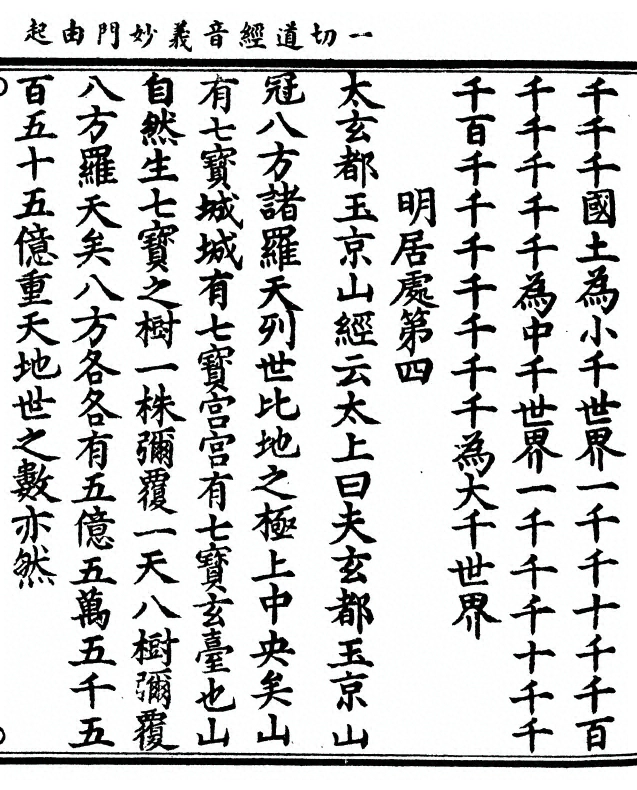 一切道經音義妙門由起
千千千國土為小千世界一千千十千千百
千千千千千為中千世界一千千千十千千
千百千千千千千千千為大千世界
明居處第四
太玄都玉京山經云太上曰夫玄都玉京山
冠八方諸羅天列世比地之極上中央矣山
有七寶城城有七寶宮宮有七寶玄臺也山
自然生七寶之樹一株彌覆一天八樹彌覆
八方羅天矣八方各各有五億五萬五千五
百五十五億重天地世之數亦然